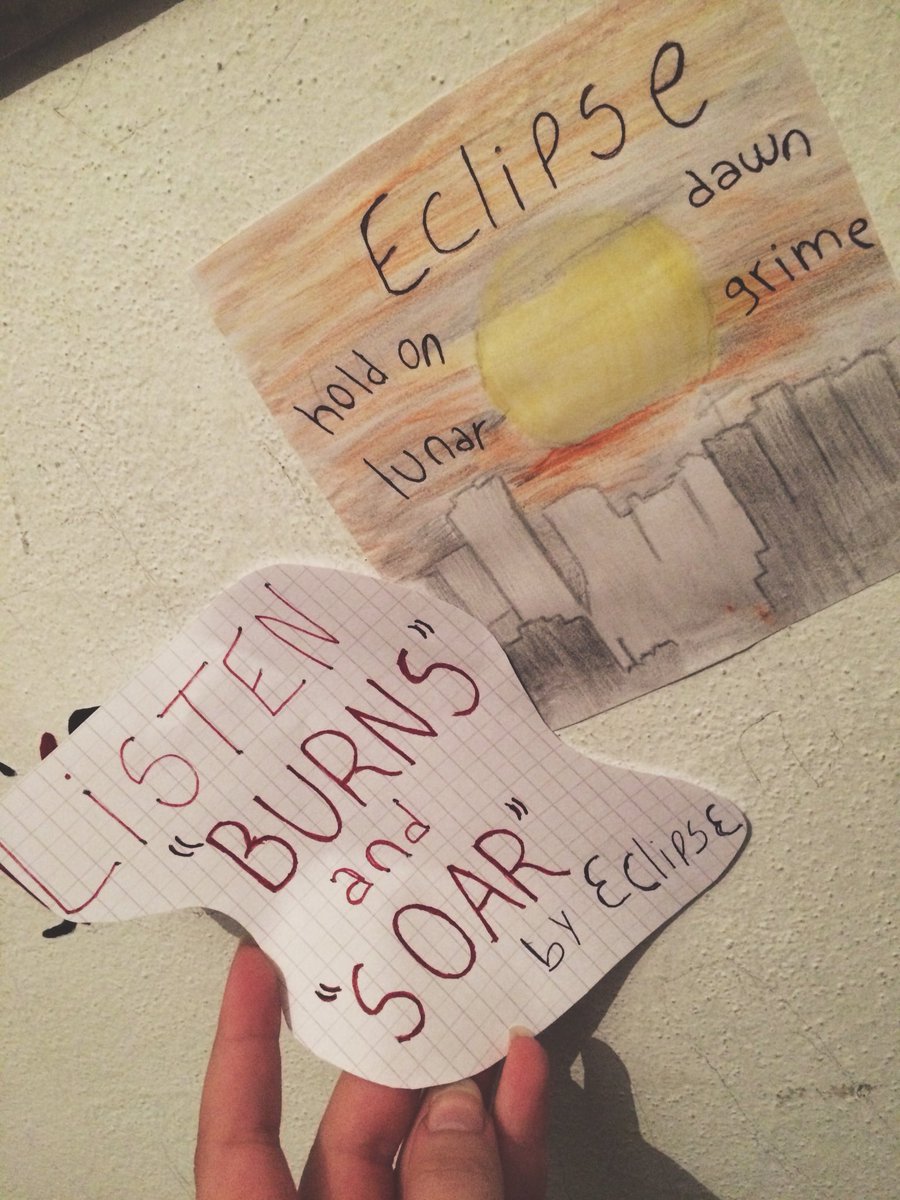 Eclipse
dawn
grime
hold on
lunar
LiSTEN
"BURNS"
and
"SOAR"
by Eclipse